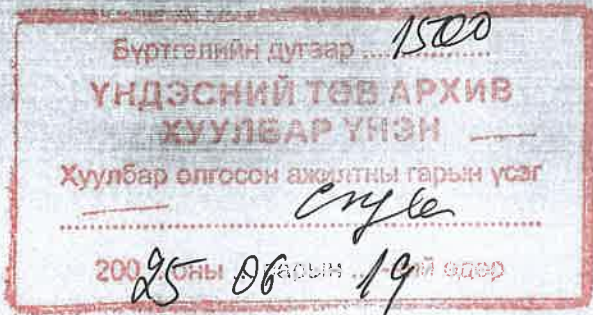 Бүртгэлийн дугаар ..... 1500
ҮНДЭСНИЙ ТӨВ АРХИВ
ХУУЛБАР ҮНЭН
Хуулбар олгосон ажилтны гарын үсэг
200 25 оны 06 сарын 19 -ний өдөр